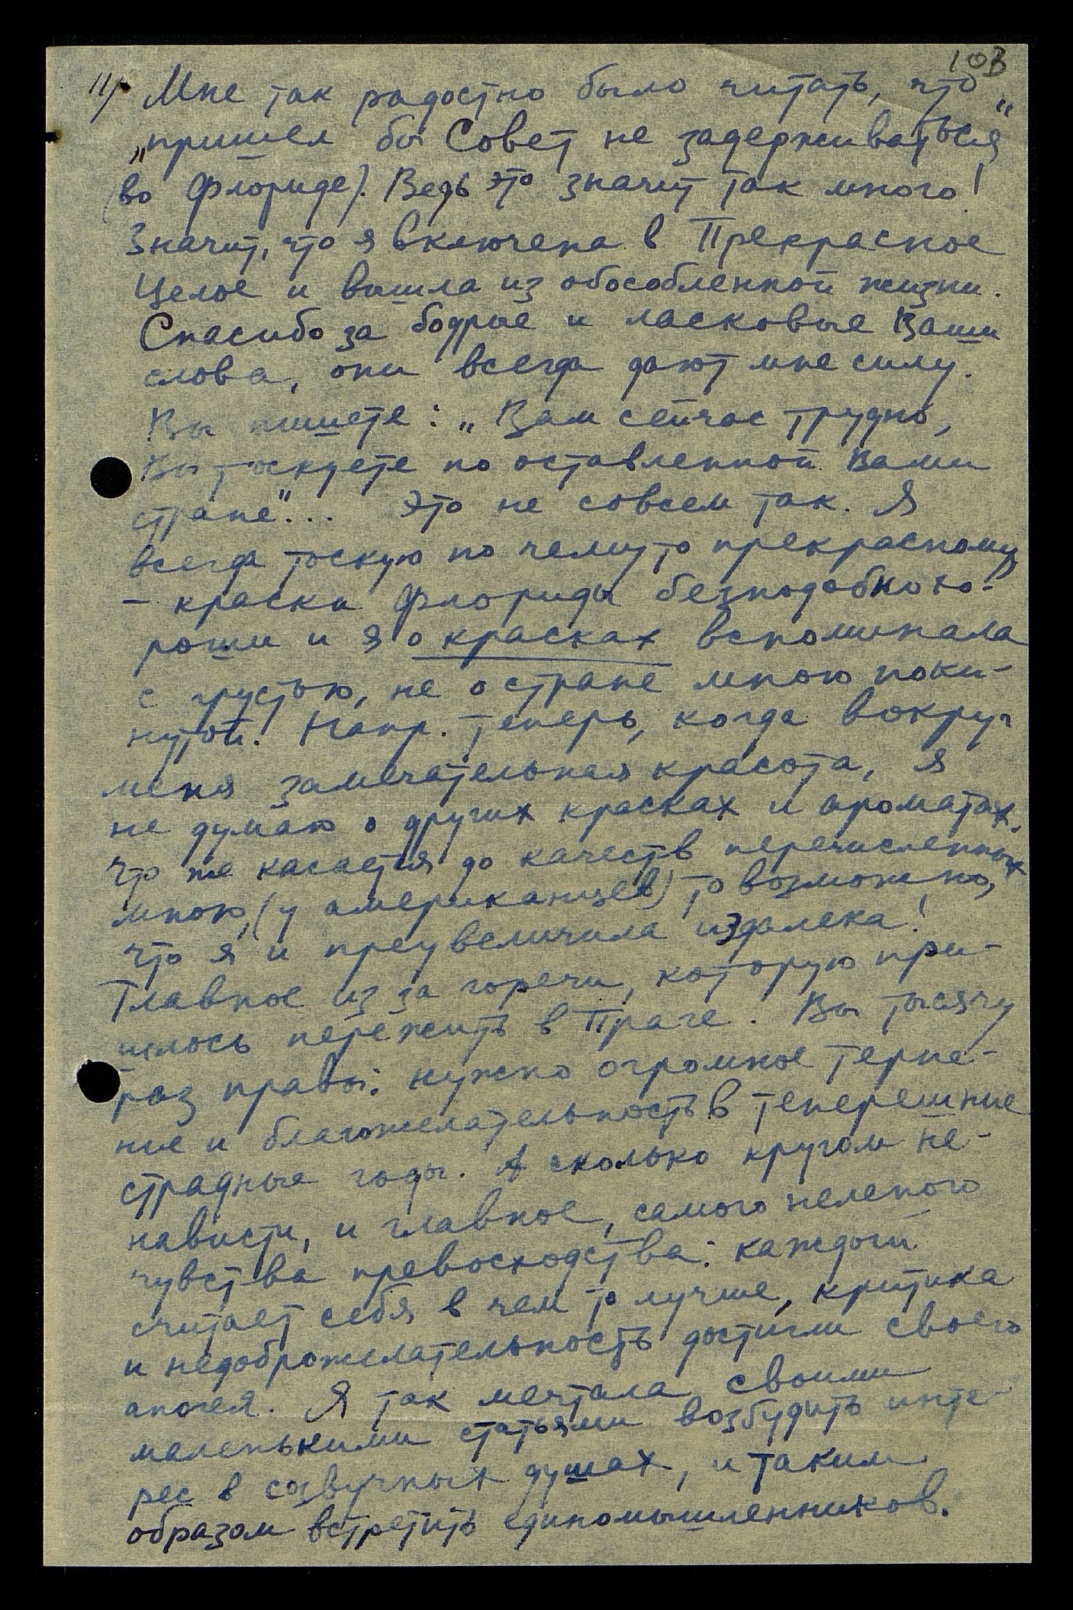 103
11/. Мне так радостно было читать, что
„пришел бы Совет не задерживаться“
(во Флориде). Ведь это значит так много!
Значит, что я включена в Прекрасное
Целое и вышла из обособленной жизни.
Спасибо за бодрые и ласковые Ваши
слова, они всегда дают мне силу.
Вы пишете: „Вам сейчас трудно,
Вы тоскуете по оставленной Вами
стране“... Это не совсем так. Я
всегда тоскую по чему то прекрасному
– краски Флориды безподобно хо-
роши и я о красках вспоминала
с грустью, не о стране мною поки-
нутой! Напр. теперь, когда вокруг
меня замечательная красота, я
не думаю о других красках и ароматах.
Что же касается до качеств перечисленных
мною, (у американцев) то возможно,
что я и преувеличила издалека!
Главное из за горечи, которую при-
шлось пережить в Праге. Вы тысячу
раз правы: нужно огромное терпе-
ние и благожелательность в теперешние
страдные годы. А сколько кругом не-
нависти, и главное, самого нелепого
чувства превосходства: каждый
считает себя в чем то лучше, критика
и недоброжелательность достигли своего
апогея. Я так мечтала своими
маленькими статьями возбудить инте-
рес в созвучных душах, и таким
образом встретить единомышленников.